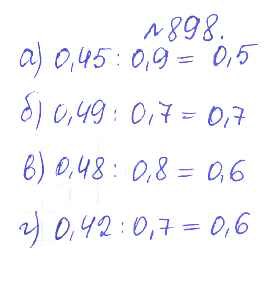 №898.
а) 0,45 : 0,9 = 0,5
б) 0,49 : 0,7 = 0,7
в) 0,48 : 0,8 = 0,6
г) 0,42 : 0,7 = 0,6